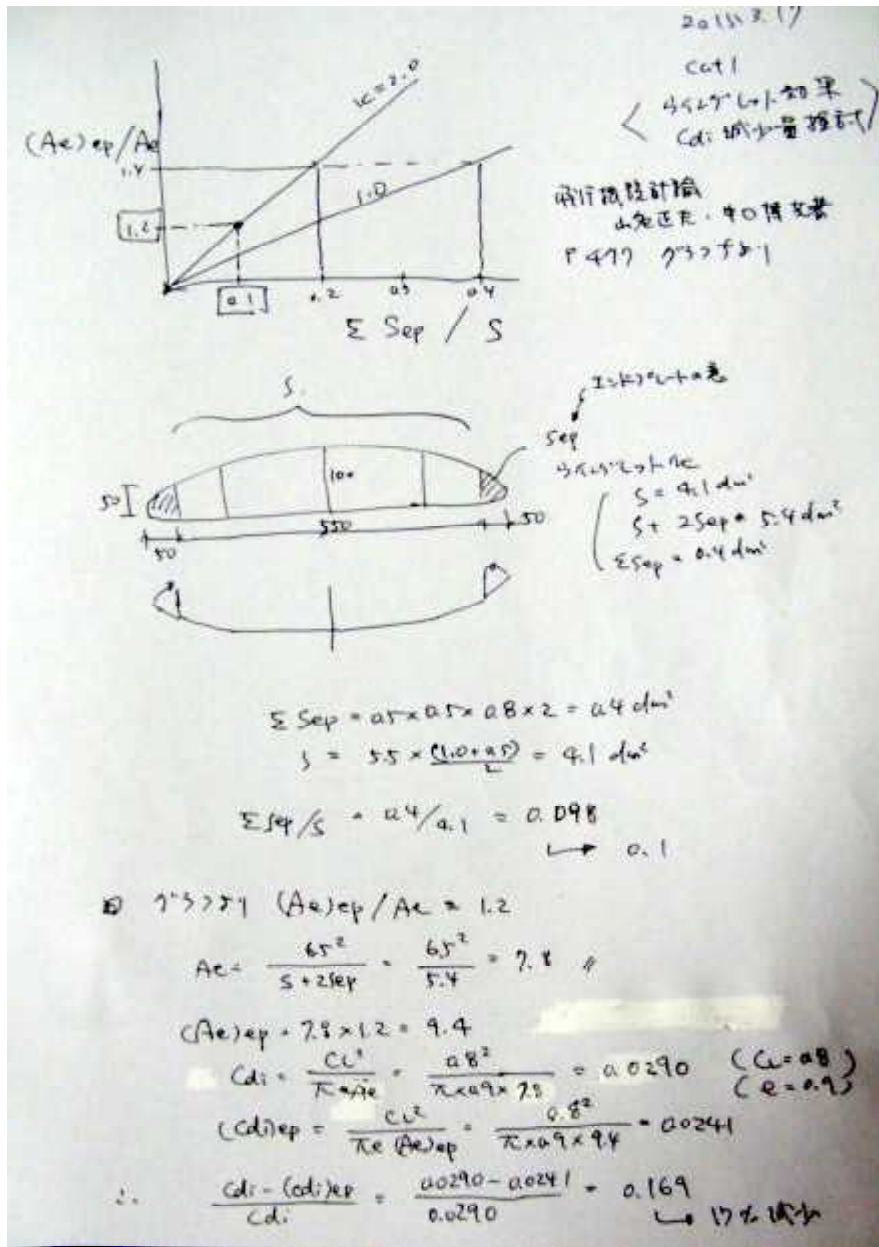 2015.3.17
Cat 1
ウイングレット効果
Cdi 減少量検討
飛行機設計論
山名正夫・中口博文著
P 477 グラフより
(Ae)ep/Ae
K=2.0
1.4
1.0
1.2
0.1 0.2 0.3 0.4
Σ Sep / S
S
エンドプレートの意
Sep
50
100
50 550 50
S = 4.1 dm²
S + 2Sep = 5.4 dm²
ΣSep = 0.4 dm²
Σ Sep = 0.5 × 0.5 × 0.8 × 2 = 0.4 dm²
S = 5.5 × (1.0+0.5)/2 = 4.1 dm²
ΣSep/S = 0.4/4.1 = 0.098
→ 0.1
グラフより (Ae)ep/Ae = 1.2
Ae = 6.5²/S+2Sep = 6.5²/5.4 = 7.8 〃
(Ae)ep = 7.8 × 1.2 = 9.4
Cdi = CL²/πeAe = 0.8²/π×0.9×7.8 = 0.0290 (CL=0.8)
(e=0.9)
(Cdi)ep = CL²/πe(Ae)ep = 0.8²/π×0.9×9.4 = 0.0241
∴ Cdi-(cdi)ep/Cdi = 0.0290-0.0241/0.0290 = 0.169
→ 17% 減少